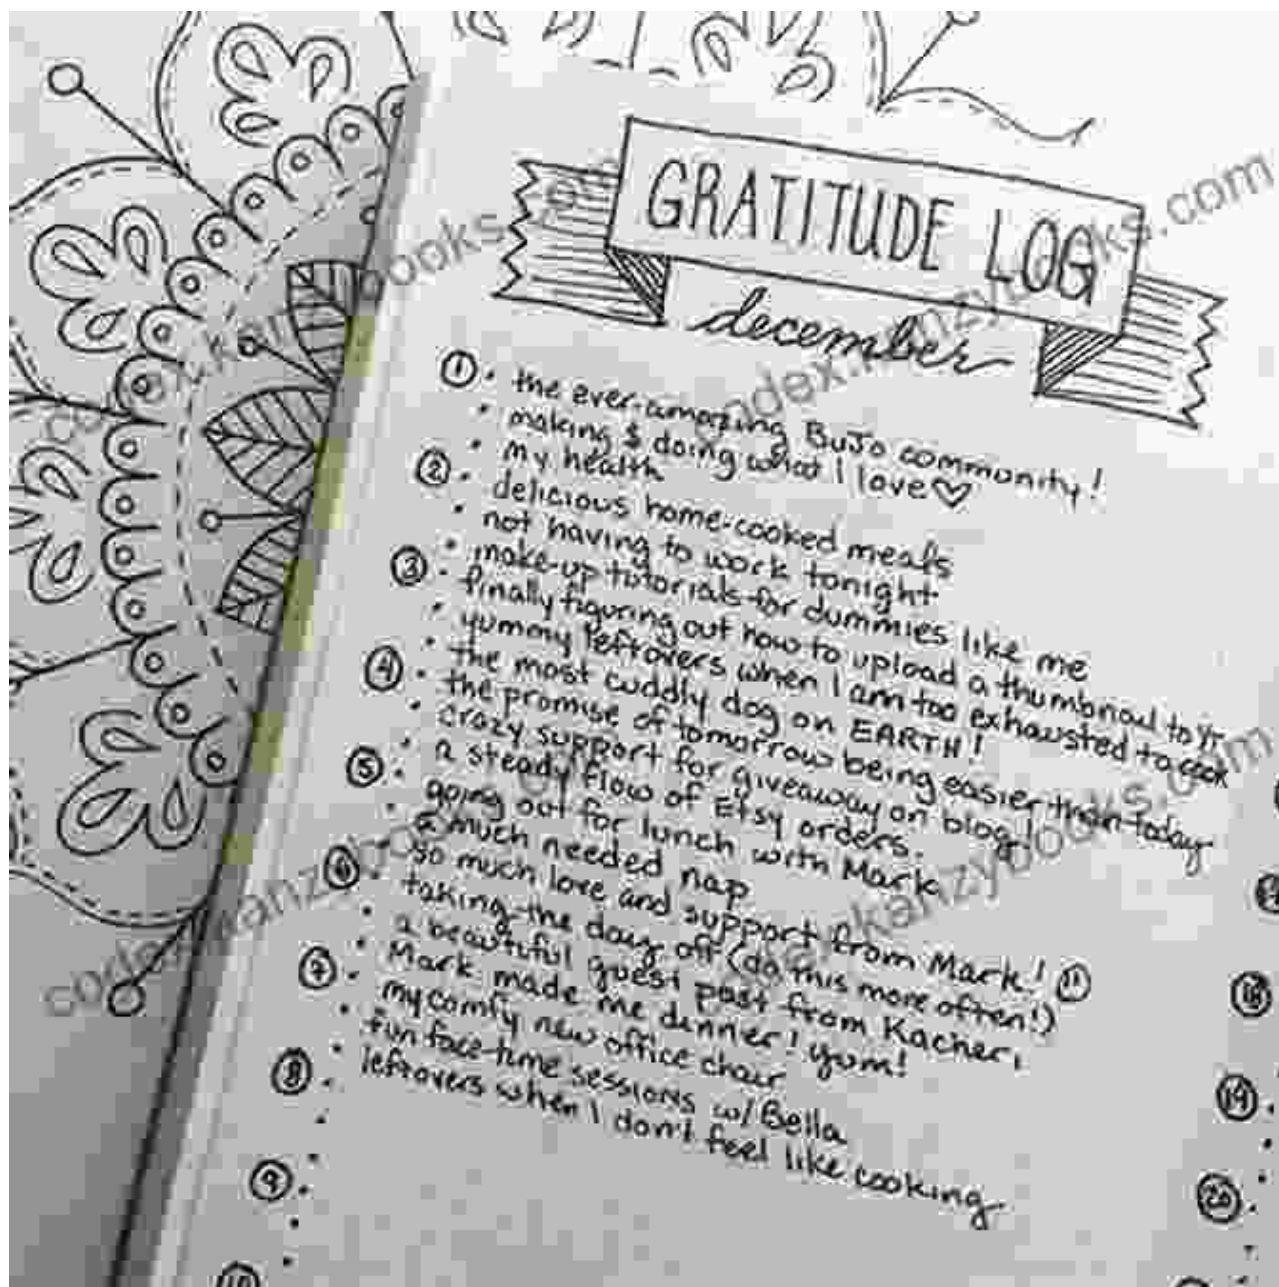 GRATITUDE LOG
december
① • the ever-amazing BuJo community!
• making & doing what I love ♡
• my health
② • delicious home-cooked meals
• not having to work tonight
• make-up tutorials for dummies like me
③ • finally figuring out how to upload a thumbnail to YT
• yummy leftovers when I am too exhausted to cook
• the most cuddly dog on EARTH!
④ • the promise of tomorrow being easier than today
• crazy support for giveaway on blog!
• a steady flow of Etsy orders.
⑤ • going out for lunch with Mark
• a much needed nap
• so much love and support from Mark!
⑥ • taking the day off (do this more often!)
• a beautiful guest post from Kacheri
• Mark made me dinner! yum!
⑦ • my comfy new office chair
• fun face-time sessions w/ Bella
• leftovers when I don't feel like cooking
⑧
⑨
⑩
⑱
⑲
⑳
codex.kanzybooks.com
codex.kanzybooks.com
codex.kanzybooks.com
codex.kanzybooks.com